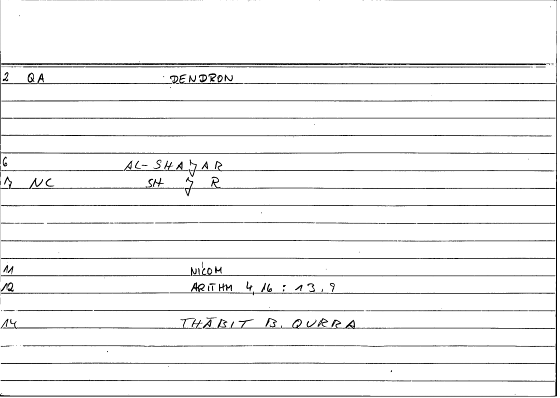 2 QA DENDRON
6 AL-SHAǦAR
7 NC SH Ǧ R
11 NICOM
12 ARITHM 4,16 : 13,9
14 THĀBIT B. QURRA